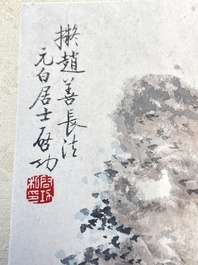 擬趙善長法
元白居士啓功